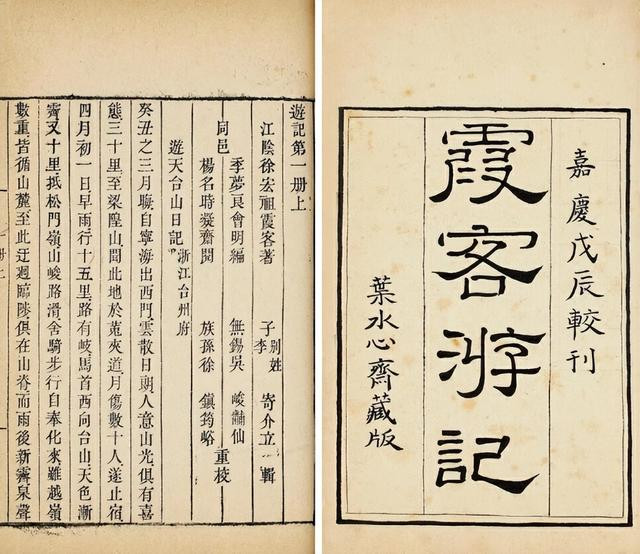 嘉慶戊辰較刊
霞客游記
葉水心齋藏版
遊記第一册上
江陰徐宏祖霞客著 子李別姓寄介立輯
同邑
季夢良會明編 無錫吳峻黼仙
楊名時凝齋閱 族孫徐鎮筠峪
重校
遊天台山日記 浙江台州府
癸丑之三月晦自寧海出西門雲散日朗人意山光俱有喜
態三十里至梁隍山聞此地於菟夾道月傷數十人遂止宿
四月初一日早雨行十五里路有岐馬首西向台山天色漸
霽又十里抵松門嶺山峻路滑舍騎步行自奉化來雖越嶺
數重皆循山麓至此迂迴臨陟俱在山脊而雨後新霽泉聲